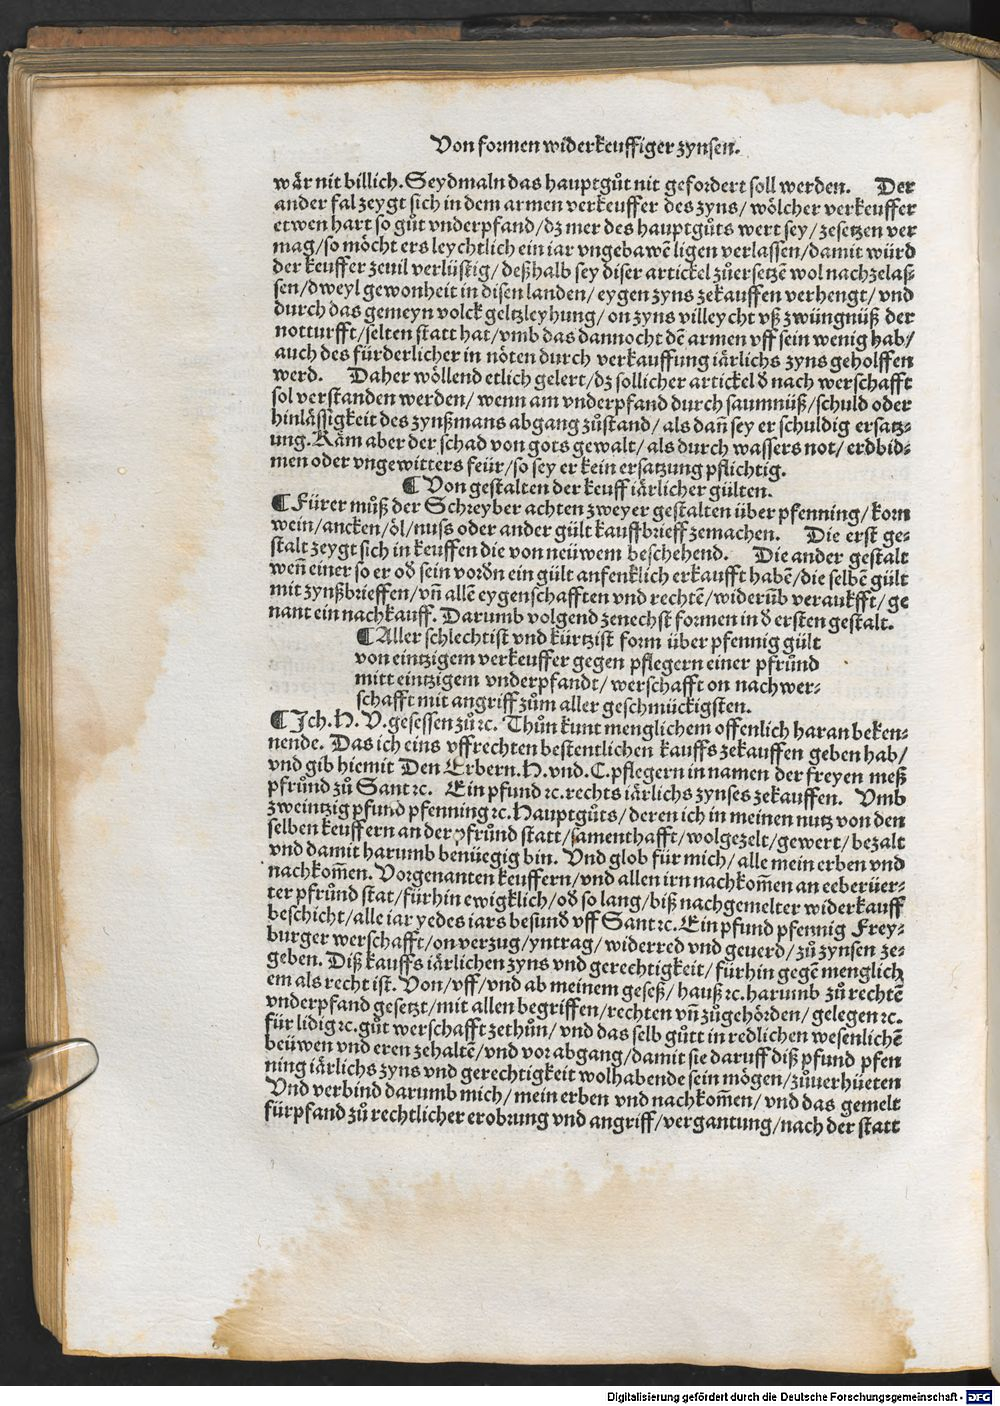 Von formen widerkeuffiger zynsen.
wår nit billich. Seydmaln das hauptgůt nit gefordert soll werden. Der
ander fal zeygt sich in dem armen verkeuffer des zyns/ wölcher verkeuffer
etwen hart so gůt vnderpfand/dz mer des hauptgůts wert sey/ zesetzen ver
mag/so möcht ers leychtlich ein iar vngebawẽ ligen verlassen/damit würd
der keuffer zeuil verlüstig/ deßhalb sey diser artickel zůersetzẽ wol nachzelaß
sen/dweyl gewonheit in disen landen/ eygen zyns zekauffen verhengt/ vnd
durch das gemeyn volck geltzleyhung/ on zyns villeycht vß zwüngnüß der
notturfft/selten statt hat/ vmb das dannocht dẽ armen vff sein wenig hab/
auch des fürderlicher in nöten durch verkauffung iårlichs zyns geholffen
werd. Daher wöllend etlich gelert/dz sollicher artickel d̕ nach werschafft
sol verstanden werden/ wenn am vnderpfand durch saumnüß/schuld oder
hinlåssigkeit des zynßmans abgang zůstand/ als dañ sey er schuldig ersatz⸗
ung. Kåm aber der schad von gots gewalt/ als durch wassers not/ erdbid⸗
men oder vngewitters feür/so sey er kein ersatzung pflichtig.
¶ Von gestalten der keuff iårlicher gülten.
¶ Fürer můß der Schreyber achten zweyer gestalten über pfenning/ korn
wein/ancken/öl/nuss oder ander gült kauffbrieff zemachen. Die erst ge⸗
stalt zeygt sich in keuffen die von neüwem beschehend. Die ander gestalt
weñ einer so er od̕ sein vordn ein gült anfenklich erkaufft habẽ/die selbẽ gült
mit zynßbrieffen/vñ allẽ eygenschafften vnd rechtẽ/widerũb veraukfft/ge
nant ein nachkauff. Darumb volgend zenechst formen in d̕ ersten gestalt.
¶ Aller schlechtist vnd kürtzist form über pfennig gült
von eintzigem verkeuffer gegen pflegern einer pfrůnd
mitt eintzigem vnderpfandt/ werschafft on nachwer⸗
schafft mit angriff zům aller geschmückigsten.
¶ Ich. H. V. gesessen zů ⁊c. Thůn kunt menglichem offenlich haran beken⸗
nende. Das ich eins vffrechten bestentlichen kauffs zekauffen geben hab/
vnd gib hiemit Den Erbern. H. vnd. C. pflegern in namen der freyen meß
pfrůnd zů Sant ⁊c. Ein pfund ⁊c. rechts iårlichs zynses zekauffen. Vmb
zweintzig pfund pfenning ⁊c. Hauptgůts/ deren ich in meinen nutz von den
selben keuffern an der pfrůnd statt/samenthafft/wolgezelt/gewert/bezalt
vnd damit harumb benüegig bin. Vnd glob für mich/alle mein erben vnd
nachkom̃en. Vorgenanten keuffern/vnd allen irn nachkom̃en an eeberüer⸗
ter pfrůnd stat/fürhin ewigklich/od̕ so lang/biß nachgemelter widerkauff
beschicht/alle iar yedes iars besund̕ vff Sant ⁊c. Ein pfund pfennig Frey⸗
burger werschafft/on verzug/yntrag/ widerred vnd geuerd/ zů zynsen ze⸗
geben. Diß kauffs iårlichen zyns vnd gerechtigkeit/fürhin gegẽ menglich
em als recht ist. Von/vff/vnd ab meinem geseß/ hauß ⁊c. harumb zů rechtẽ
vnderpfand gesetzt/mit allen begriffen/rechten vñ zůgehörden/ gelegen ⁊c.
für lidig ⁊c. gůt werschafft zethůn/ vnd das selb gůtt in redlichen wesenlichẽ
beüwen vnd eren zehaltẽ/vnd vor abgang/damit sie daruff diß pfund pfen
ning iårlichs zyns vnd gerechtigkeit wolhabende sein mögen/zůuerhüeten
Vnd verbind darumb mich/ mein erben vnd nachkom̃en/ vnd das gemelt
fürpfand zů rechtlicher erobrung vnd angriff/vergantung/nach der statt
Digitalisierung gefördert durch die Deutsche Forschungsgemeinschaft - DFG